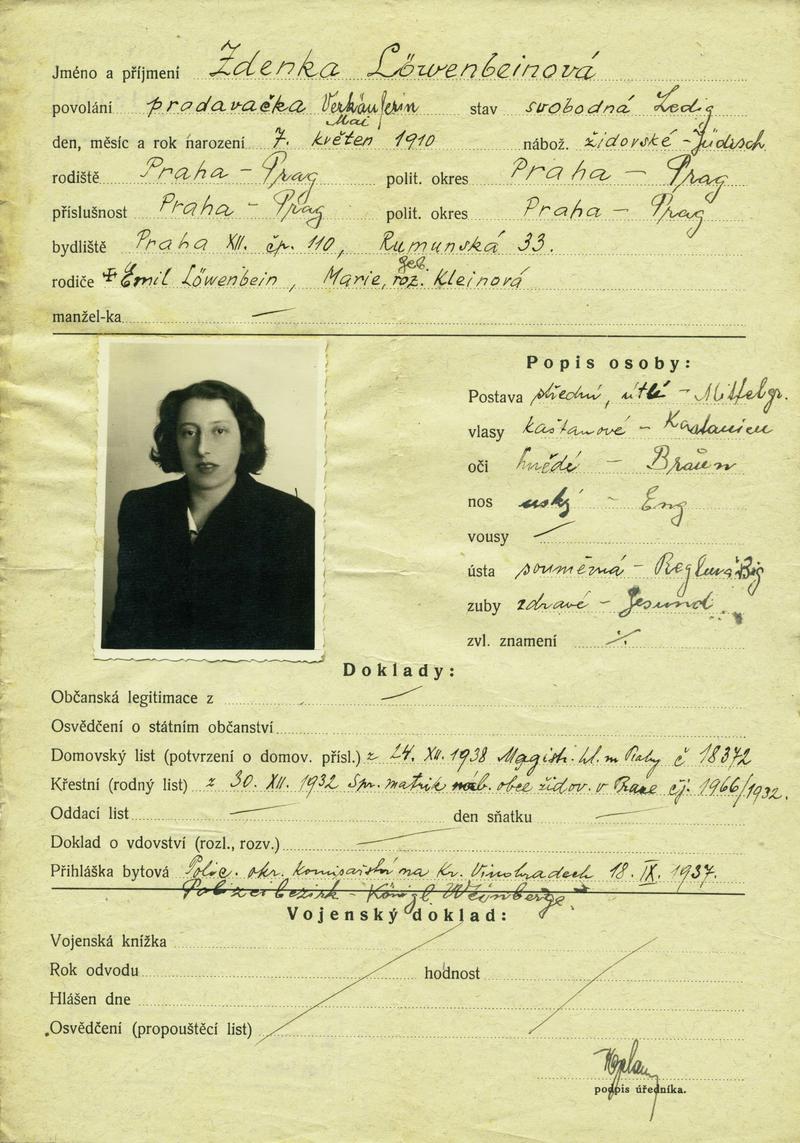 Jméno a příjmení Zdenka Löwenbeinová
povolání prodavačka Verkäuferin stav svobodná Ledig
den, měsíc a rok narození 7. květen Mai 1910 nábož. židovské - Jüdisch
rodiště Praha - Prag polit. okres Praha - Prag
příslušnost Praha - Prag polit. okres Praha - Prag
bydliště Praha XII. čp. 110, Rumunská 33.
rodiče Emil Löwenbein, Marie, roz. geb. Kleinová
manžel-ka —
Popis osoby:
Postava střední, útlá - Mittelgr.
vlasy kaštanové - Kastanien
oči hnědé - Braun
nos úský - Eng
vousy —
ústa souměrná -
zuby zdravé - Gesund
zvl. znamení ⁒
Doklady:
Občanská legitimace z —
Osvědčení o státním občanství
Domovský list (potvrzení o domov. přísl.) z 24. XII. 1938 Magistr. hl. m Prahy č 18372
Křestní (rodný list) z 30. XII. 1932 Spr. matrik náb. obce židov. v Praze čj. 1966/1932.
Oddací list — den sňatku —
Doklad o vdovství (rozl., rozv.) —
Přihláška bytová Polic. okr. komisařství na Kr. Vinohradech 18. IX. 1937.
Polizeibezirk - Königl. Weinberge
Vojenský doklad:
Vojenská knížka
Rok odvodu hodnost
Hlášen dne
Osvědčení (propouštěcí list)
podpis úředníka.